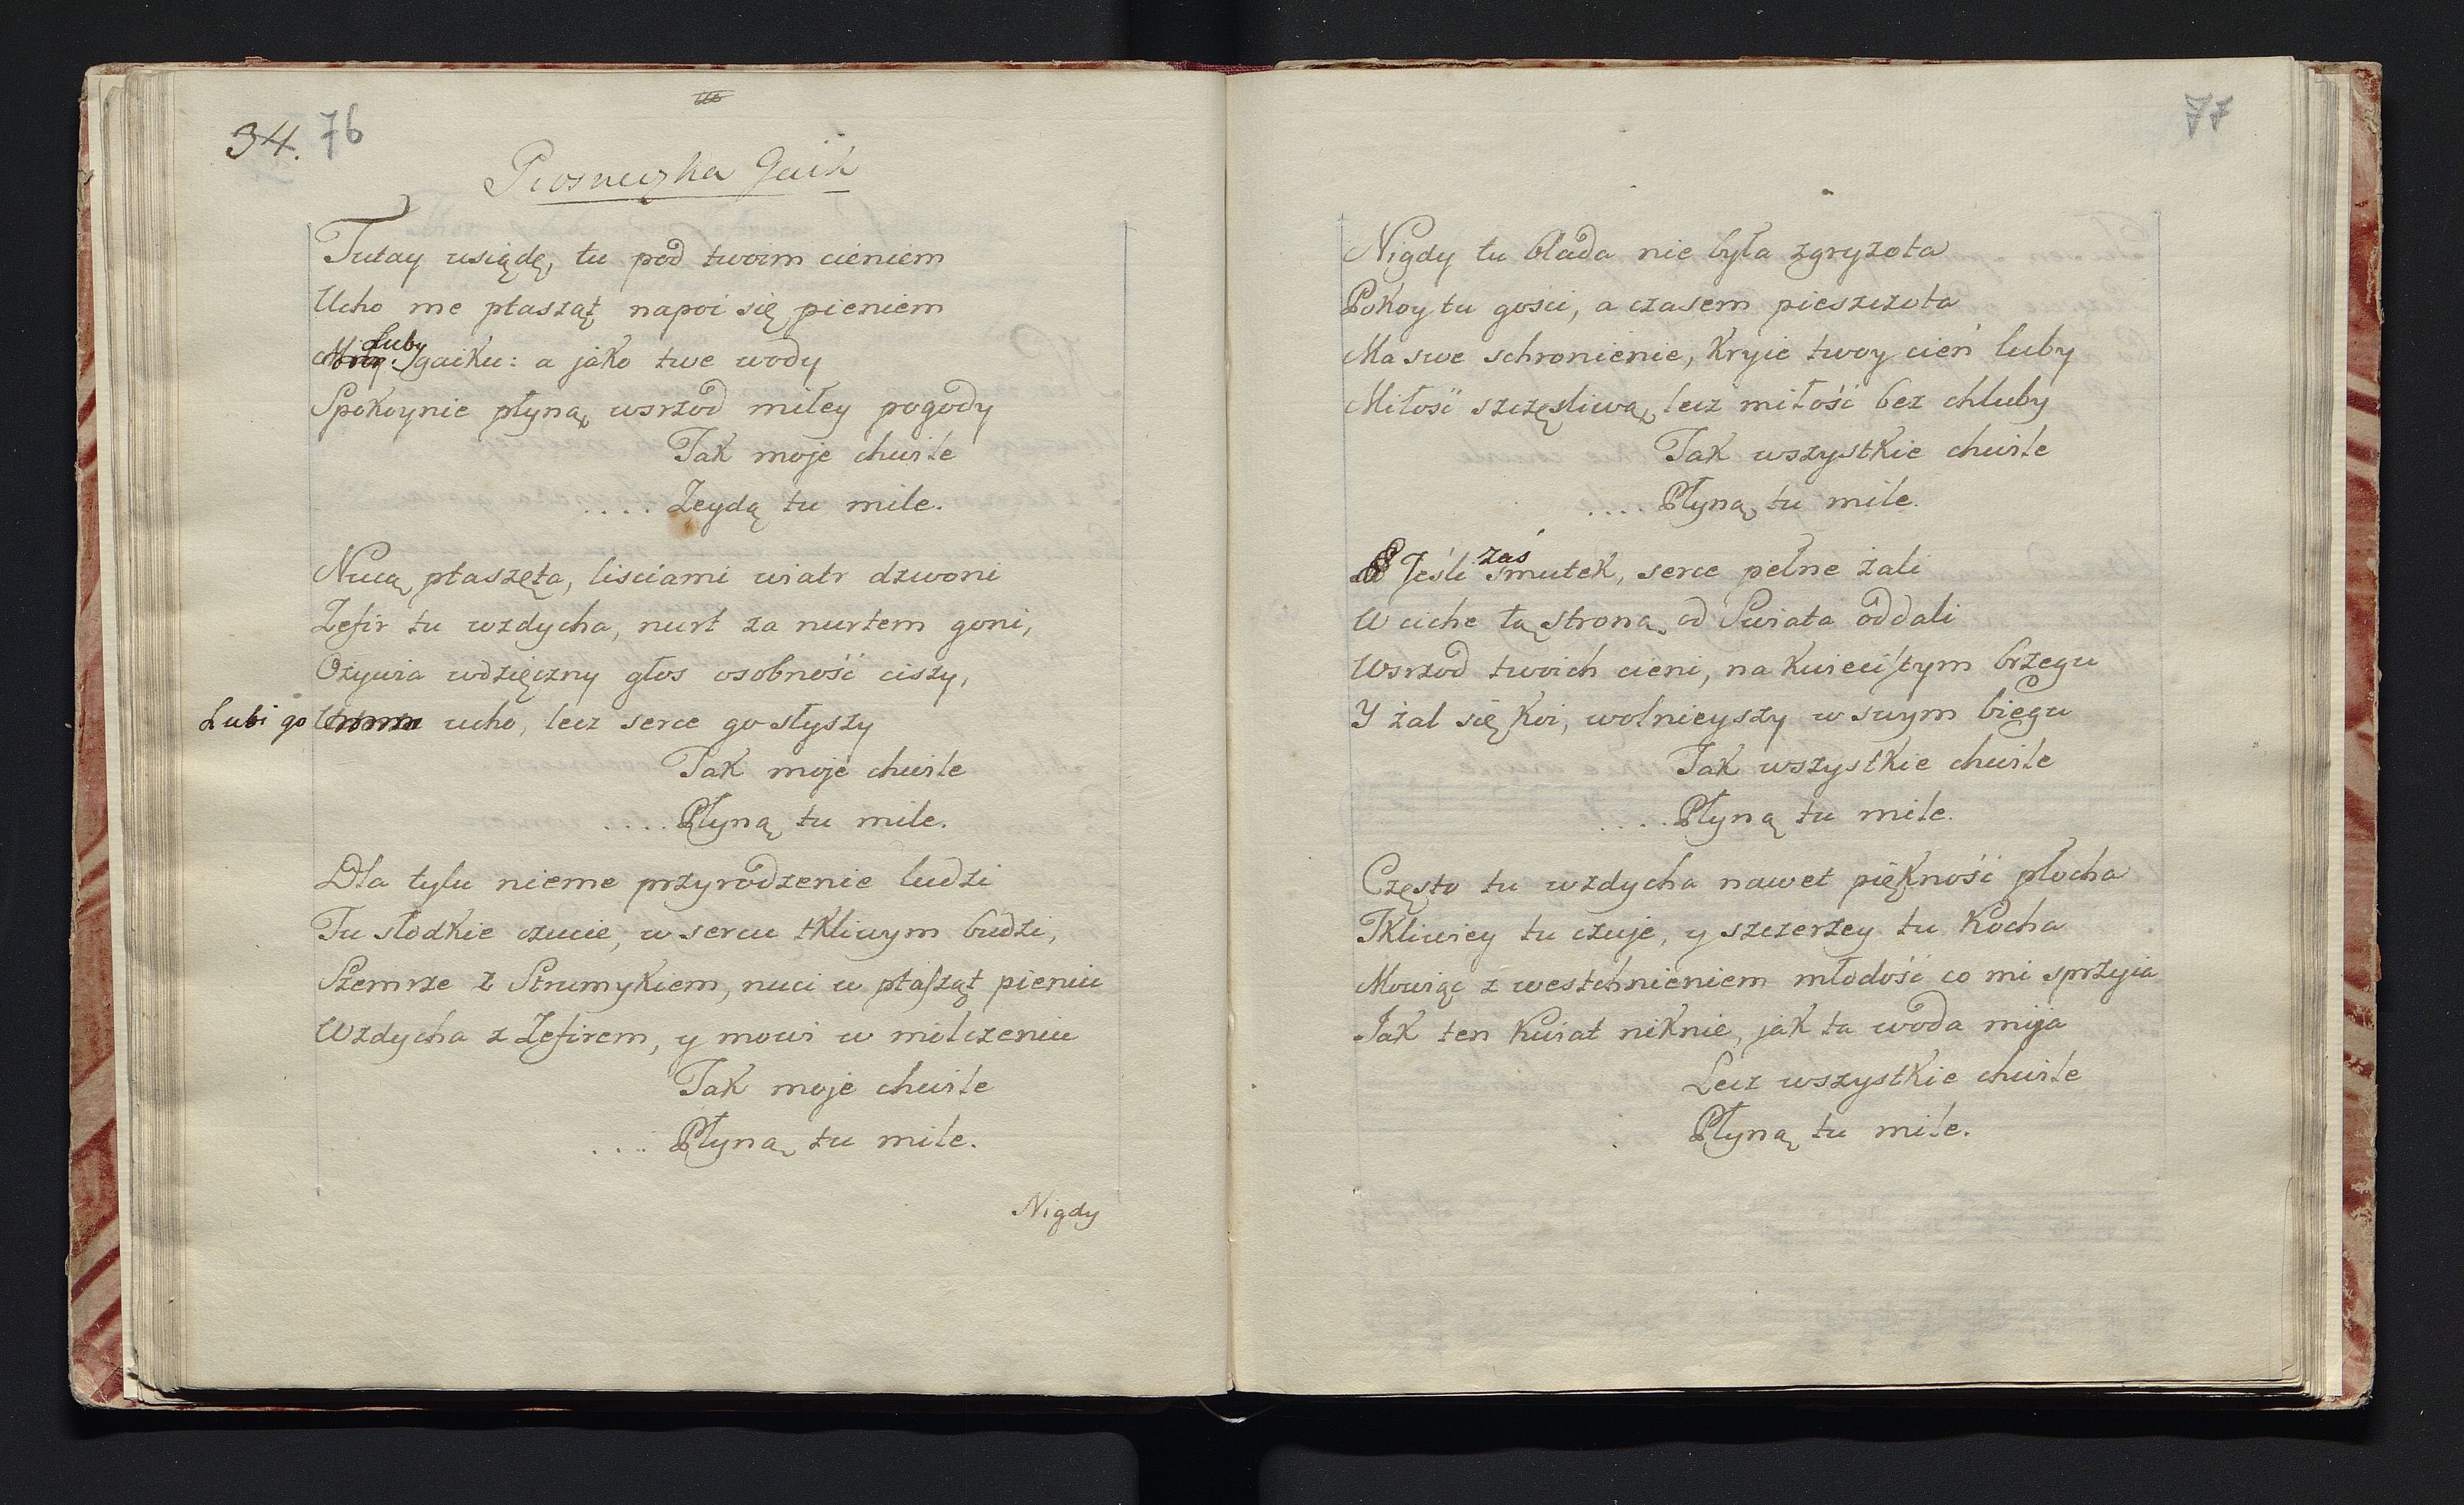 34. 76
Piosneczka Gaik
Tutay usiędę, tu pod twoim cieniem
Ucho me ptasząt napoi się pieniem
Luby
Miły gaiku: a jako twe wody
Spokoynie płyną wsrzod miłey pogody
Tak moje chwile
.... Zeydą tu mile.
Nucą ptaszęta, lisciami wiatr dzwoni
Zefir tu wzdycha, nurt za nurtem goni,
Ożywia wdzięczny głos osobność ciszy,
Lubi go ucho, lecz serce go słyszy
Tak moje chwile
.... Płyną tu mile.
Dla tylu nieme przyrodzenie ludzi
Tu słodkie czucie, w sercu tkliwym budzi,
Szemrze z Strumykiem, nuci w ptasząt pieniu
Wzdycha z Zefirem, y mowi w milczeniu
Tak moje chwile
.... Płyną tu mile.
Nigdy
77
Nigdy tu blada nie była zgryzota
Pokoy tu gości, a czasem pieszczota
Ma swe schronienie, kryie twoy cień luby
Miłość szczęsliwą, lecz miłość bez chluby
Tak wszystkie chwile
.... Płyną tu mile.
zaś
Jeśli smutek, serce pełne żali
W ciche tą stroną od Swiata oddali
Wsrzod twoich cieni, na kwiecistym brzegu
Y żal się koi, wolnieyszy w swym biegu
Tak wszystkie chwile
.... Płyną tu mile.
Często tu wzdycha nawet piękność płocha
Tkliwiey tu czuje, y szczerzey tu kocha
Mowiąc z westchnieniem młodość co mi sprzyia
Jak ten kwiat niknie, jak ta woda mija
Lecz wszystkie chwile
. Płyną tu mile.